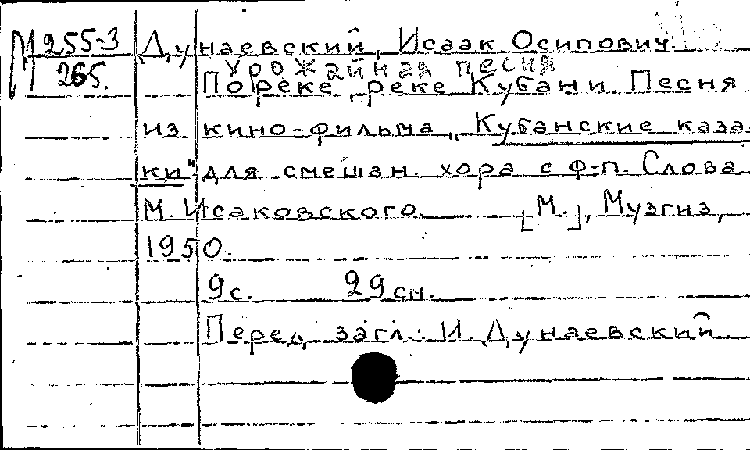 М 255-3 Дунаевский, Исаак Осипович
265. Урожайная песня
По реке, реке Кубани. Песня
из кино-фильма "Кубанские каза-
ки" для смешан. хора с ф-п. Слова
М. Исаковского. [М.], Музгиз,
1950.
9с. 29 см.
Перед загл.: И. Дунаевский.